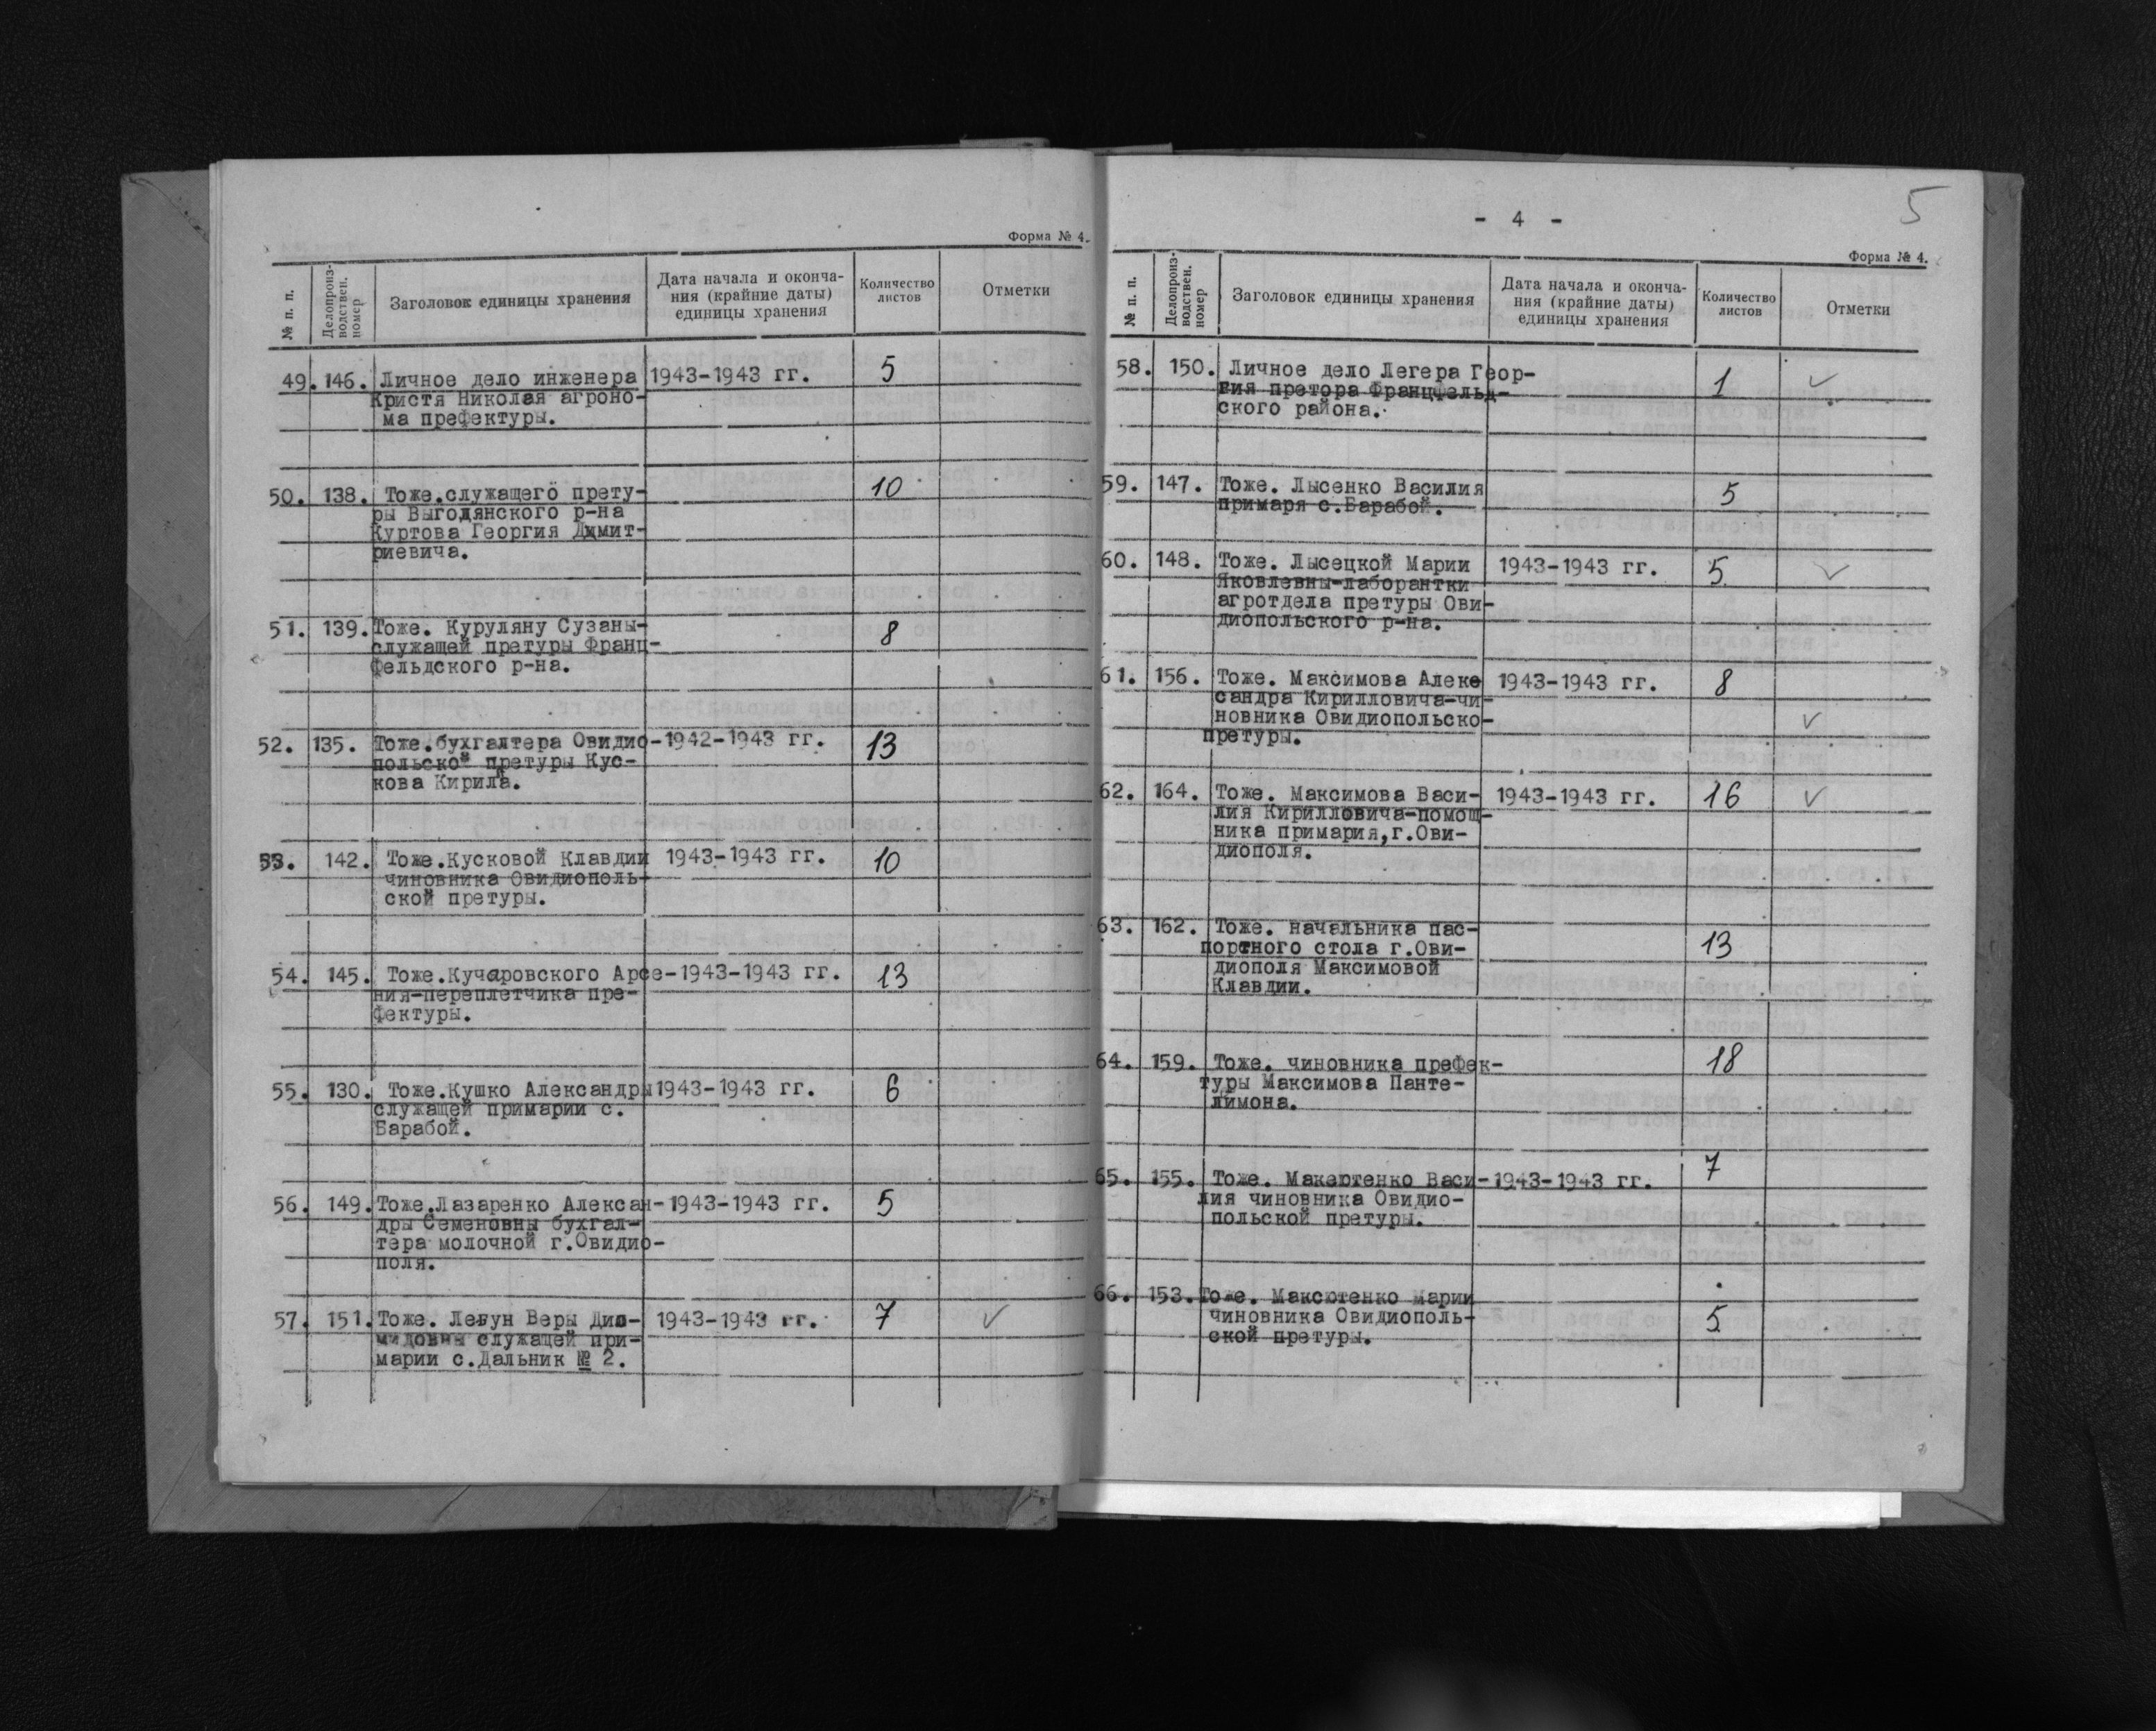 Форма № 4.
№ п. п.
Делопроиз-
водствен.
номер
Заголовок единицы хранения
Дата начала и оконча-
ния (крайние даты)
единицы хранения
Количество
листов
Отметки
49. 146. Личное дело инженера 1943-1943 гг. 5
Кристя Николая агроно-
ма префектуры.
50. 138. Тоже.служащего прету- 10
ры Выгодянского р-на
Куртова Георгия Димит-
риевича.
51. 139. Тоже. Куруляну Сузаны- 8
служащей претуры Франц-
фельдского р-на.
52. 135. Тоже.бухгалтера Овидио-1942-1943 гг. 13
польской претуры Кус-
кова Кирила.
53. 142. Тоже.Кусковой Клавдии 1943-1943 гг. 10
чиновника Овидиополь-
ской претуры.
54. 145. Тоже.Кучаровского Арсе-1943-1943 гг. 13
ния-переплетчика пре-
фектуры.
55. 130. Тоже.Кушко Александры 1943-1943 гг. 6
служащей примарии с.
Барабой.
56. 149. Тоже.Лазаренко Алексан-1943-1943 гг. 5
дры Семеновны бухгал-
тера молочной г.Овидио-
поля.
57. 151. Тоже. Легун Веры Дио- 1943-1943 гг. 7 ✓
мидовны служащей при-
марии с.Дальник № 2.
5
- 4 -
Форма № 4.
№ п. п.
Делопроиз-
водствен.
номер
Заголовок единицы хранения
Дата начала и оконча-
ния (крайние даты)
единицы хранения
Количество
листов
Отметки
58. 150. Личное дело Легера Геор- 1 ✓
гия претора Францфельд-
ского района.
59. 147. Тоже. Лысенко Василия 5
примаря с.Барабой.
60. 148. Тоже. Лысецкой Марии 1943-1943 гг. 5 ✓
Яковлевны-лаборантки
агротдела претуры Ови-
диопольского р-на.
61. 156. Тоже. Максимова Алекс 1943-1943 гг. 8 ✓
сандра Кирилловича-чи-
новника Овидиопольско-
претуры.
62. 164. Тоже. Максимова Васи- 1943-1943 гг. 16 ✓
лия Кирилловича-помощ-
ника примария,г.Ови-
диополя.
63. 162. Тоже. начальника пас- 13
портного стола г.Ови-
диополя Максимовой
Клавдии.
64. 159. Тоже. чиновника префек- 18
туры Максимова Панте-
лимона.
65. 155. Тоже. Макеютенко Васи-1943-1943 гг. 7
лия чиновника Овидио-
польской претуры.
66. 153. Тоже. Максютенко Марии 5
чиновника Овидиополь-
ской претуры.